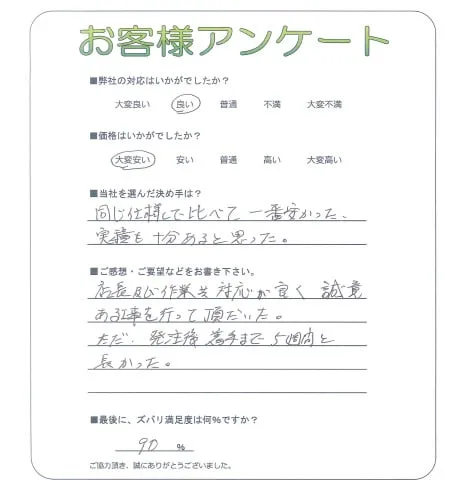 お客様アンケート
■弊社の対応はいかがでしたか？
大変良い 良い 普通 不満 大変不満
■価格はいかがでしたか？
大変安い 安い 普通 高い 大変高い
■当社を選んだ決め手は？
同じ仕様で比べて一番安かった、
実積も十分あると思った。
■ご感想・ご要望などをお書き下さい。
店長及び作業共対応が良く誠意
ある工事を行って頂だいた。
ただ、発注後着手まで5週間と
長かった。
■最後に、ズバリ満足度は何%ですか？
90 %
ご協力頂き、誠にありがとうございました。